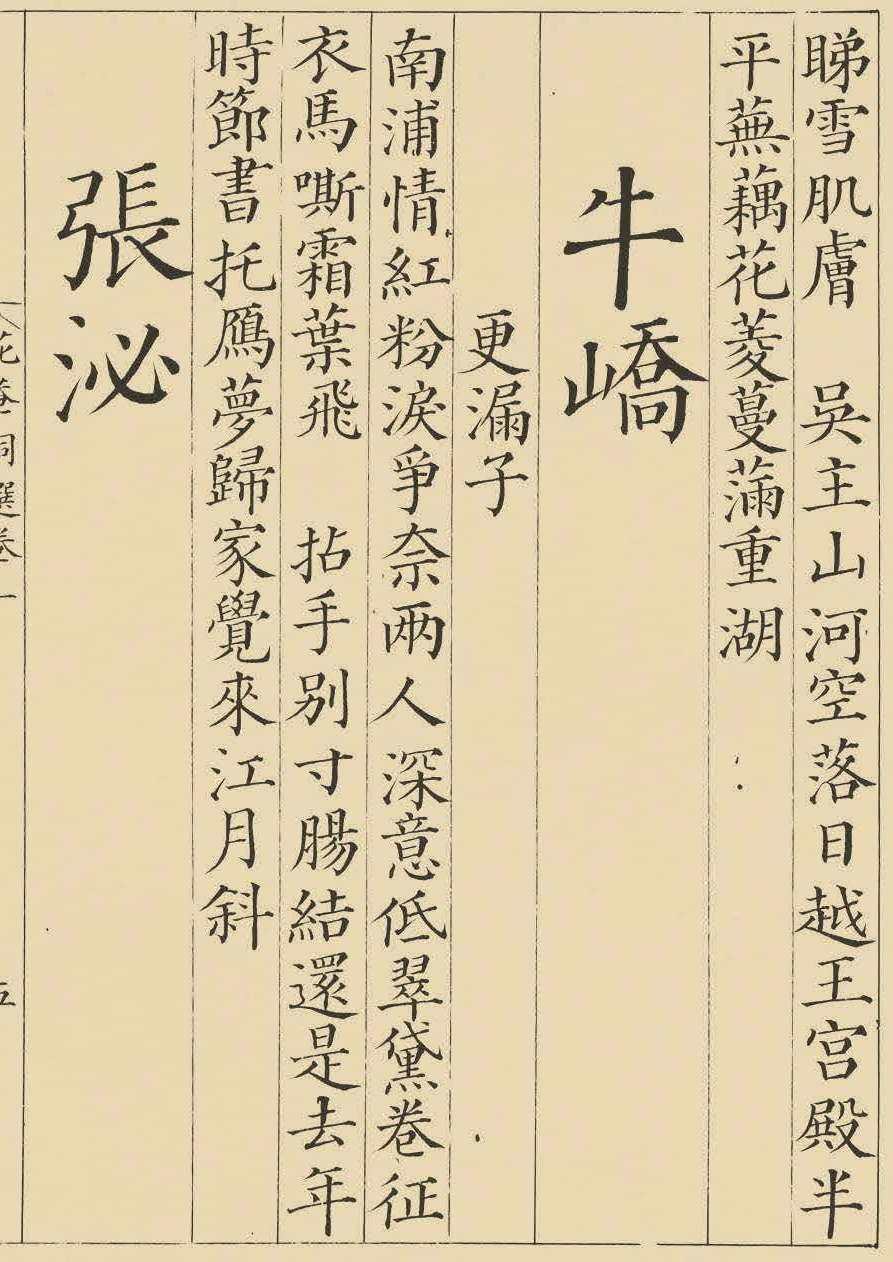 睇雪肌膚　吳主山河空落日越王宮殿半
平蕪藕花菱蔓滿重湖
牛嶠
更漏子
南浦情紅粉淚爭奈兩人深意低翠黛卷征
衣馬嘶霜葉飛　拈手別寸腸結還是去年
時節書托鴈夢歸家覺來江月斜
張泌
花菴詞選卷一
五